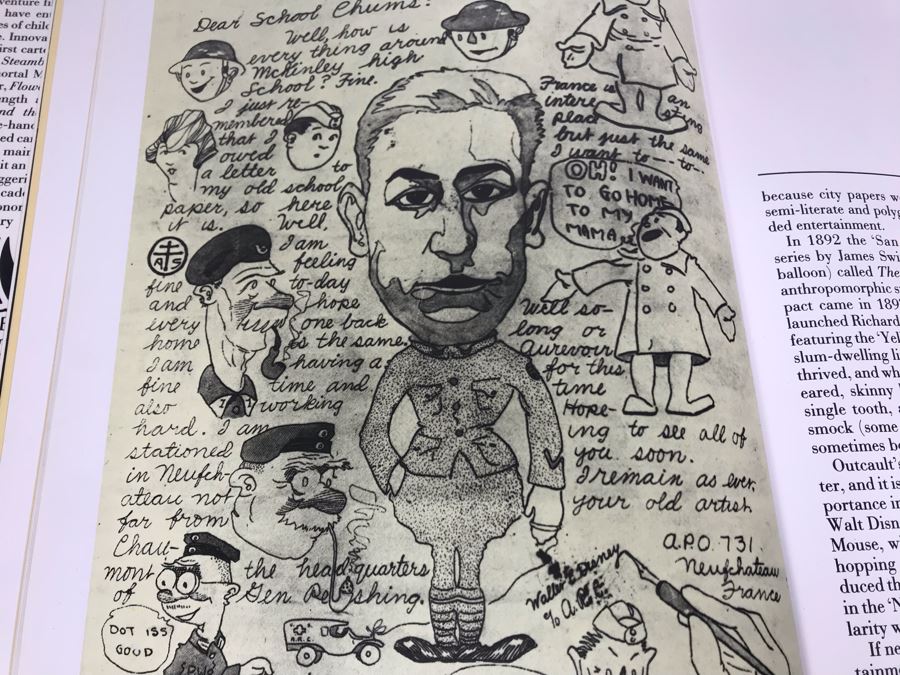 Dear School Chums:
Well, how is
every thing around
McKinley high
School? Fine.
I just re-
membered
that I
owed
a letter to
my old school
paper, so here
it is. Well,
I am
feeling
fine to-day
and I hope
every one back
home is the same.
I am having a
fine time and
also working
hard. I am
stationed
in Neufch-
ateau not
far from
Chau-
mont the headquarters
of Gen Pershing.
DOT ISS
GOUD
A.R.C.
France is an
intere sting
place
but just the same
I want to -- to..
OH! I WANT
TO GO HOME
TO MY
MAMA
Well so-
long or
Aurevoir
for this
time
Hope-
ing to see all of
you soon.
I remain as ever,
your old artist
Walter E Disney
A.P.O. 731.
Neufchateau
France
have en
es of chil
e. Innova
irst carto
Steamb
ortal M
r, Flow
ength
nd th
e-hanc
ed car
main
it an
ggeri
cade
onor
ry
because city papers w
semi-literate and polyg
ded entertainment.
In 1892 the 'San
series by James Swi
balloon) called The
anthropomorphic s
pact came in 189
launched Richard
featuring the 'Yel
slum-dwelling li
thrived, and wh
eared, skinny
single tooth, a
smock (some
sometimes be
Outcault's
ter, and it is
portance in
Walt Disn
Mouse, w
hopping
duced th
in the 'N
larity w
If ne
tainm